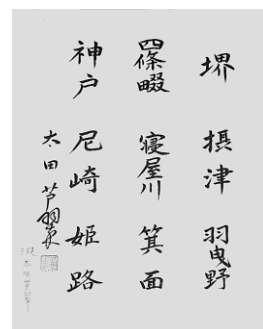 堺 摂津 羽曳野
四條畷 寝屋川 箕面
神戸 尼崎 姫路
太田芦